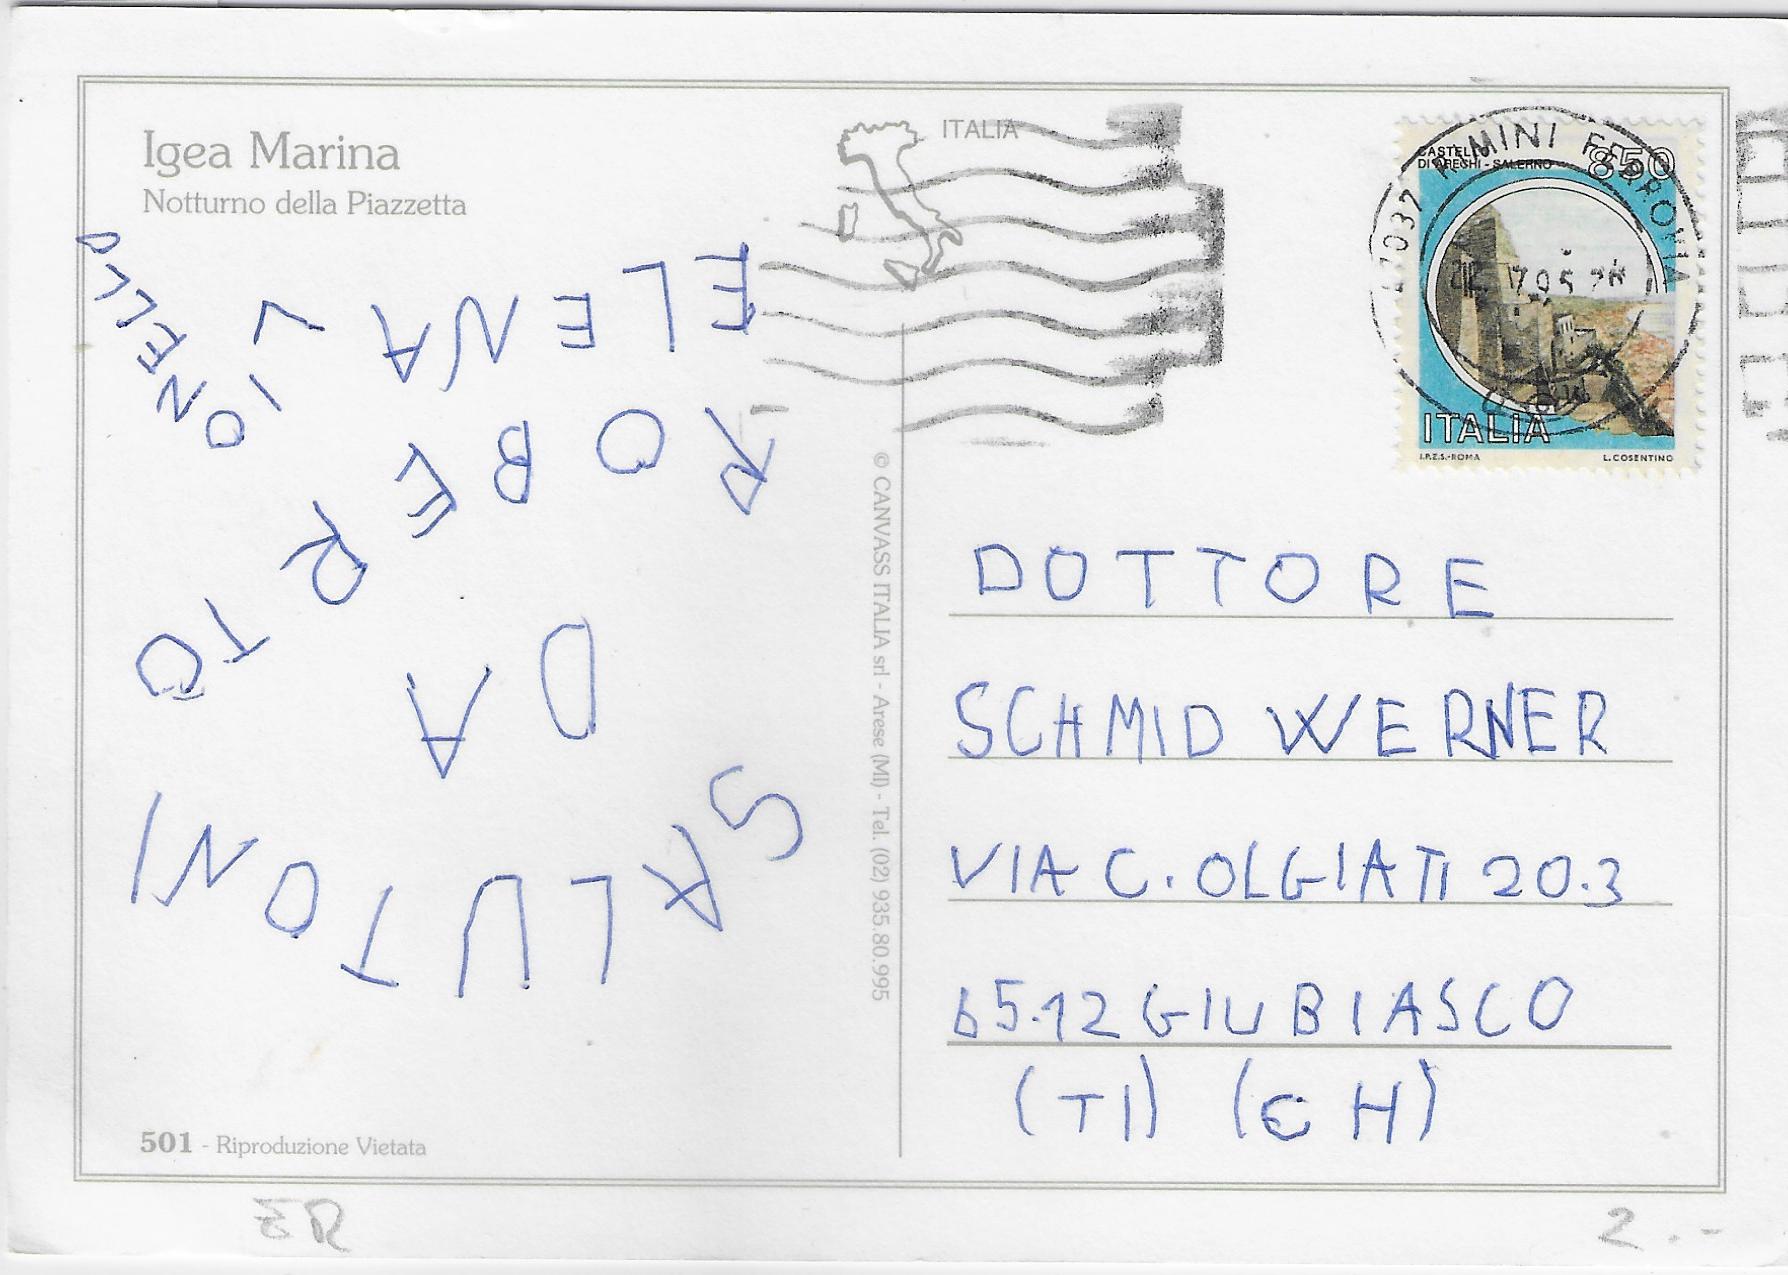 Igea Marina
Notturno della Piazzetta
ITALIA
SALUTONI
DA
ROBERTO
ELENA
LIONELLO
501 - Riproduzione Vietata
© CANVASS ITALIA srl - Arese (MI) - Tel. (02) 935.80.995
RIMINI FERROVIA
CASTELLO
DI AREGHI - SALERNO
850
ITALIA
I.P.Z.S.-ROMA L. COSENTINO
DOTTORE
SCHMID WERNER
VIA C. OLGIATI 20.3
65.12 GIUBIASCO
(TI) (CH)
2.-